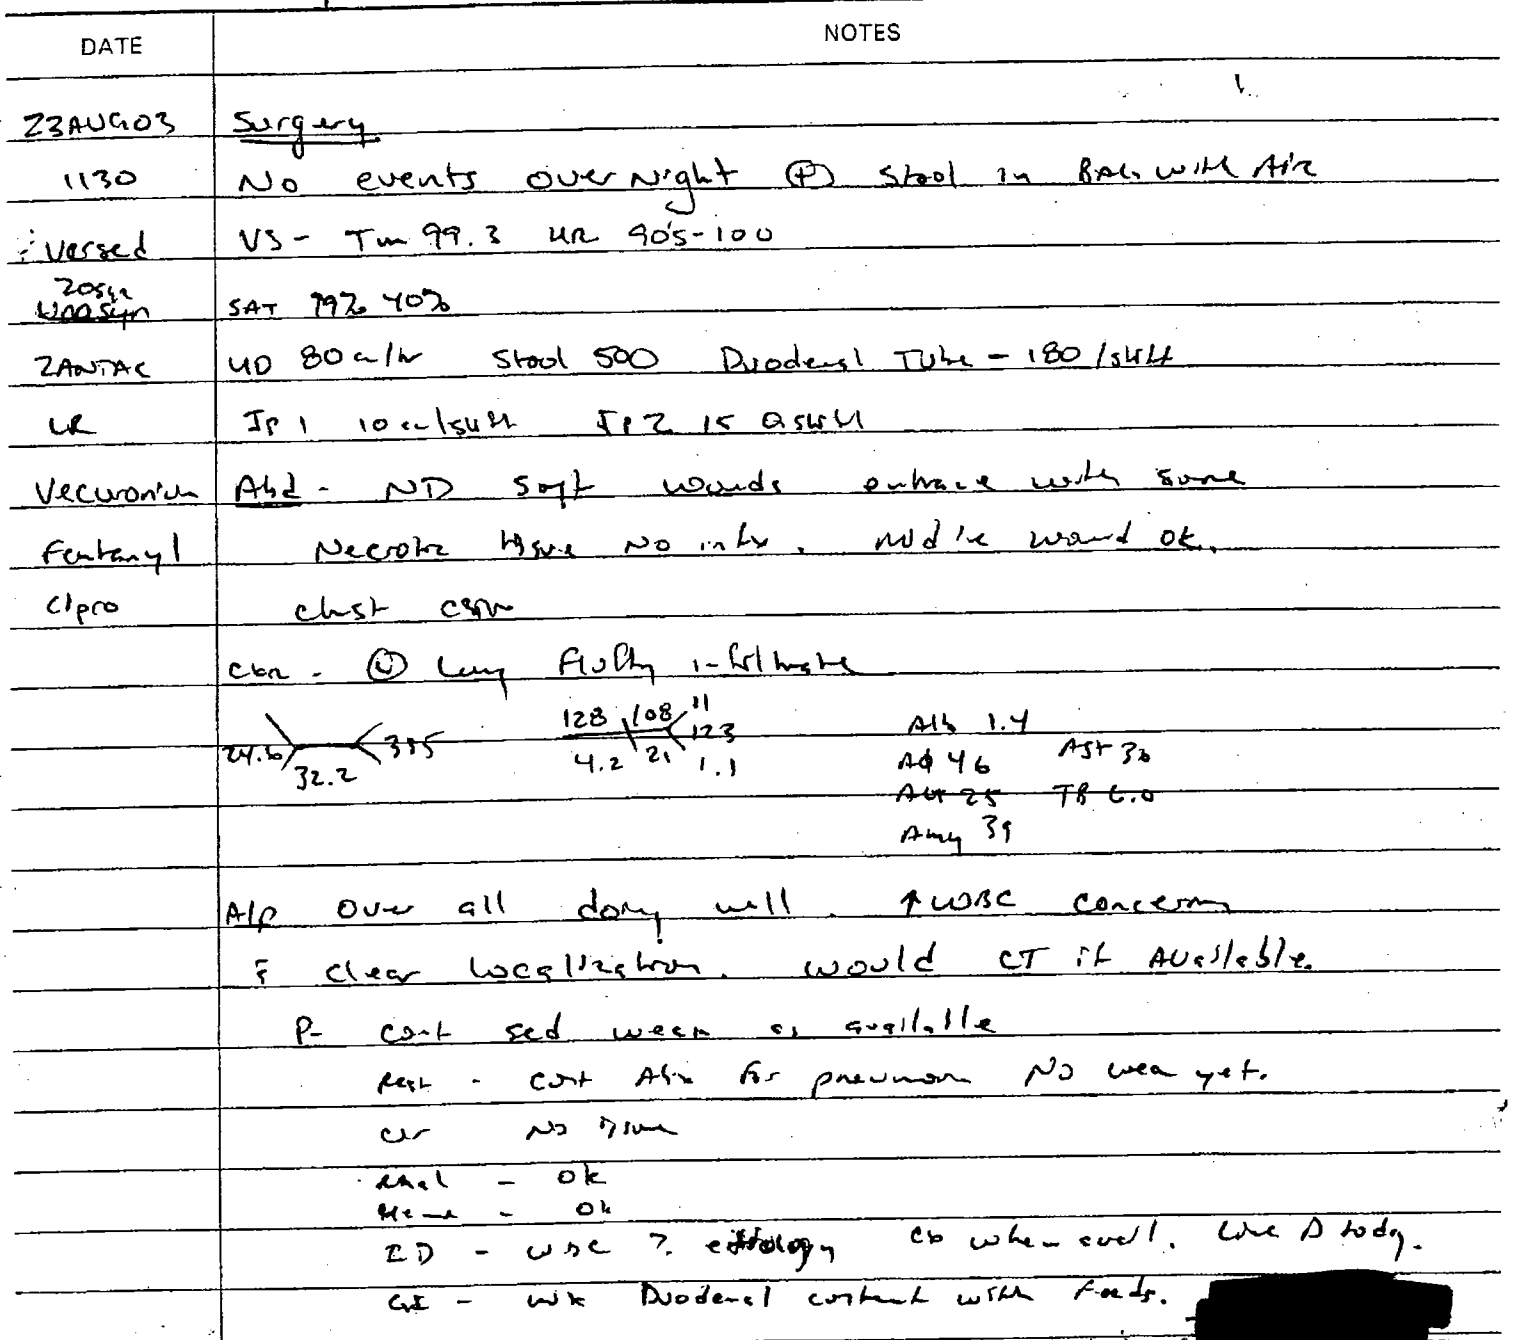 DATE NOTES
23AUG03 Surgery
1130 No events over Night ⊕ Stool in BAG with Air
Versed VS - Tm 99.3 HR 90's-100
Zosyn
Unasyn SAT 99% 40%
ZANTAC UO 80 cc/hr Stool 500 Duodenal Tube - 180/shift
LR JP 1 10 cc/shift JP 2 15 Q shift
Vecuronium Abd - ND soft wounds entrace with some
Fentanyl Necrotic tissue No infx. middle wound ok.
Cipro chest
CXR - Lung Fluffy infiltrate
24.6 32.2 385 128 108 11 123 4.2 21 1.1 Alb 1.4
AΦ 46 AST 36
Alt 25 TB 6.0
Amy 39
A/P Over all doing well. ↑WBC concerning
clear localization. would CT if Available.
P- cont sed wean as available
Resp - cont Abx for pneumon No wean yet.
CV No issue
Renal - ok
Heme - ok
ID - WBC ?. etiology CT when avail. Line Δ today.
GI - Duodenal content with feeds.